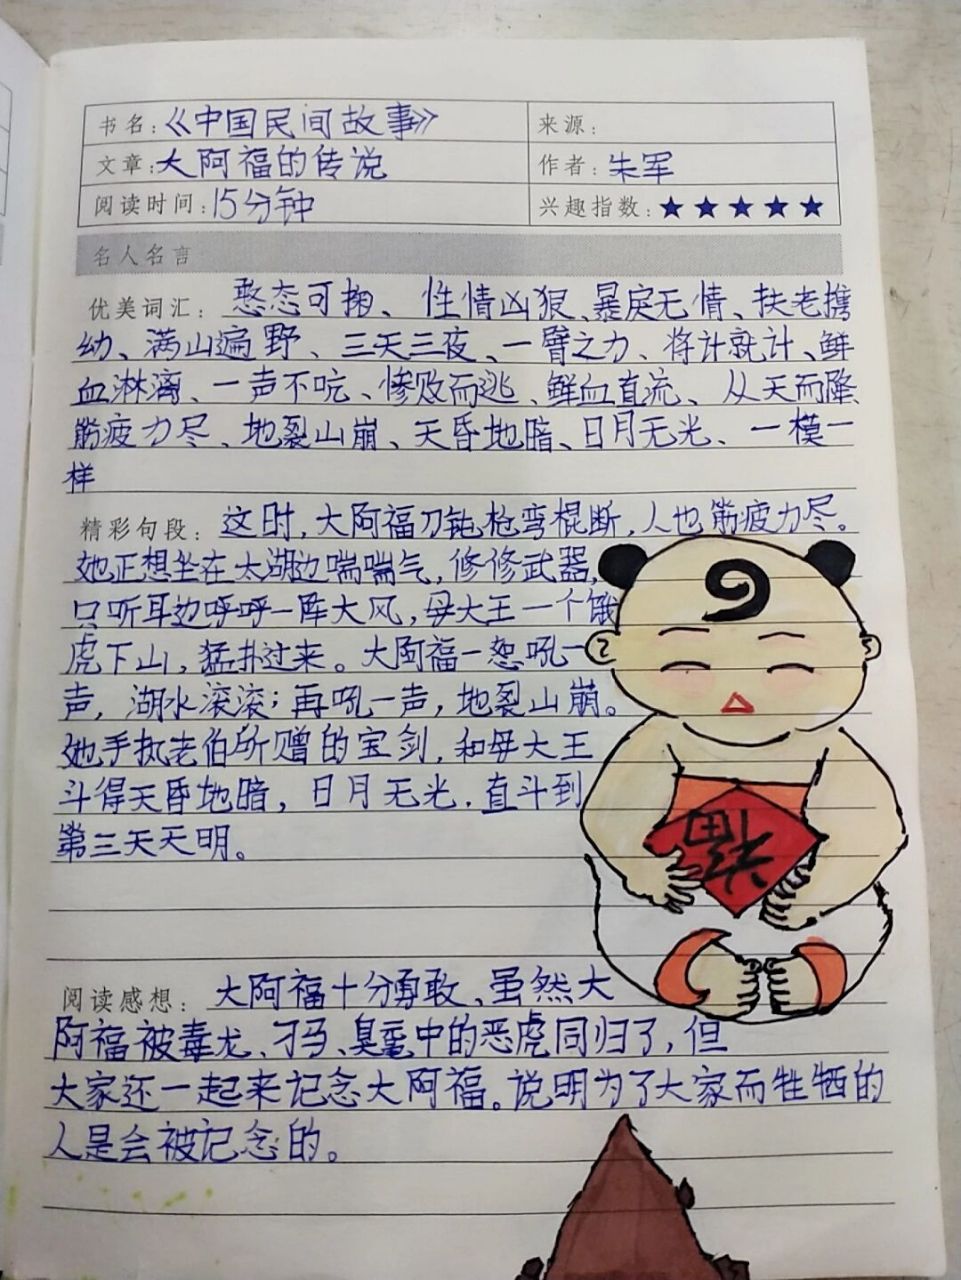 书名:《中国民间故事》 来源:
文章:大阿福的传说 作者:朱军
阅读时间:15分钟 兴趣指数:★★★★★
名人名言
优美词汇: 憨态可掬、性情凶狠、暴戾无情、扶老携
幼、满山遍野、三天三夜、一臂之力、将计就计、鲜
血淋漓、一声不吭、惨败而逃、鲜血直流、从天而降
筋疲力尽、地裂山崩、天昏地暗、日月无光、一模一
样
精彩句段: 这时,大阿福刀钝,枪弯棍断,人也筋疲力尽。
她正想坐在太湖边喘喘气,修修武器,
只听耳边呼呼一阵大风,母大王一个饿
虎下山,猛扑过来。大阿福一怒吼一
声,湖水滚滚;再吼一声,地裂山崩。
她手执老伯所赠的宝剑,和母大王
斗得天昏地暗,日月无光,直斗到
第三天天明。
福
阅读感想: 大阿福十分勇敢、虽然大
阿福被毒龙、刁马、臭鼋中的恶虎同归了,但
大家还一起来记念大阿福。说明为了大家而牲牺的
人是会被记念的。